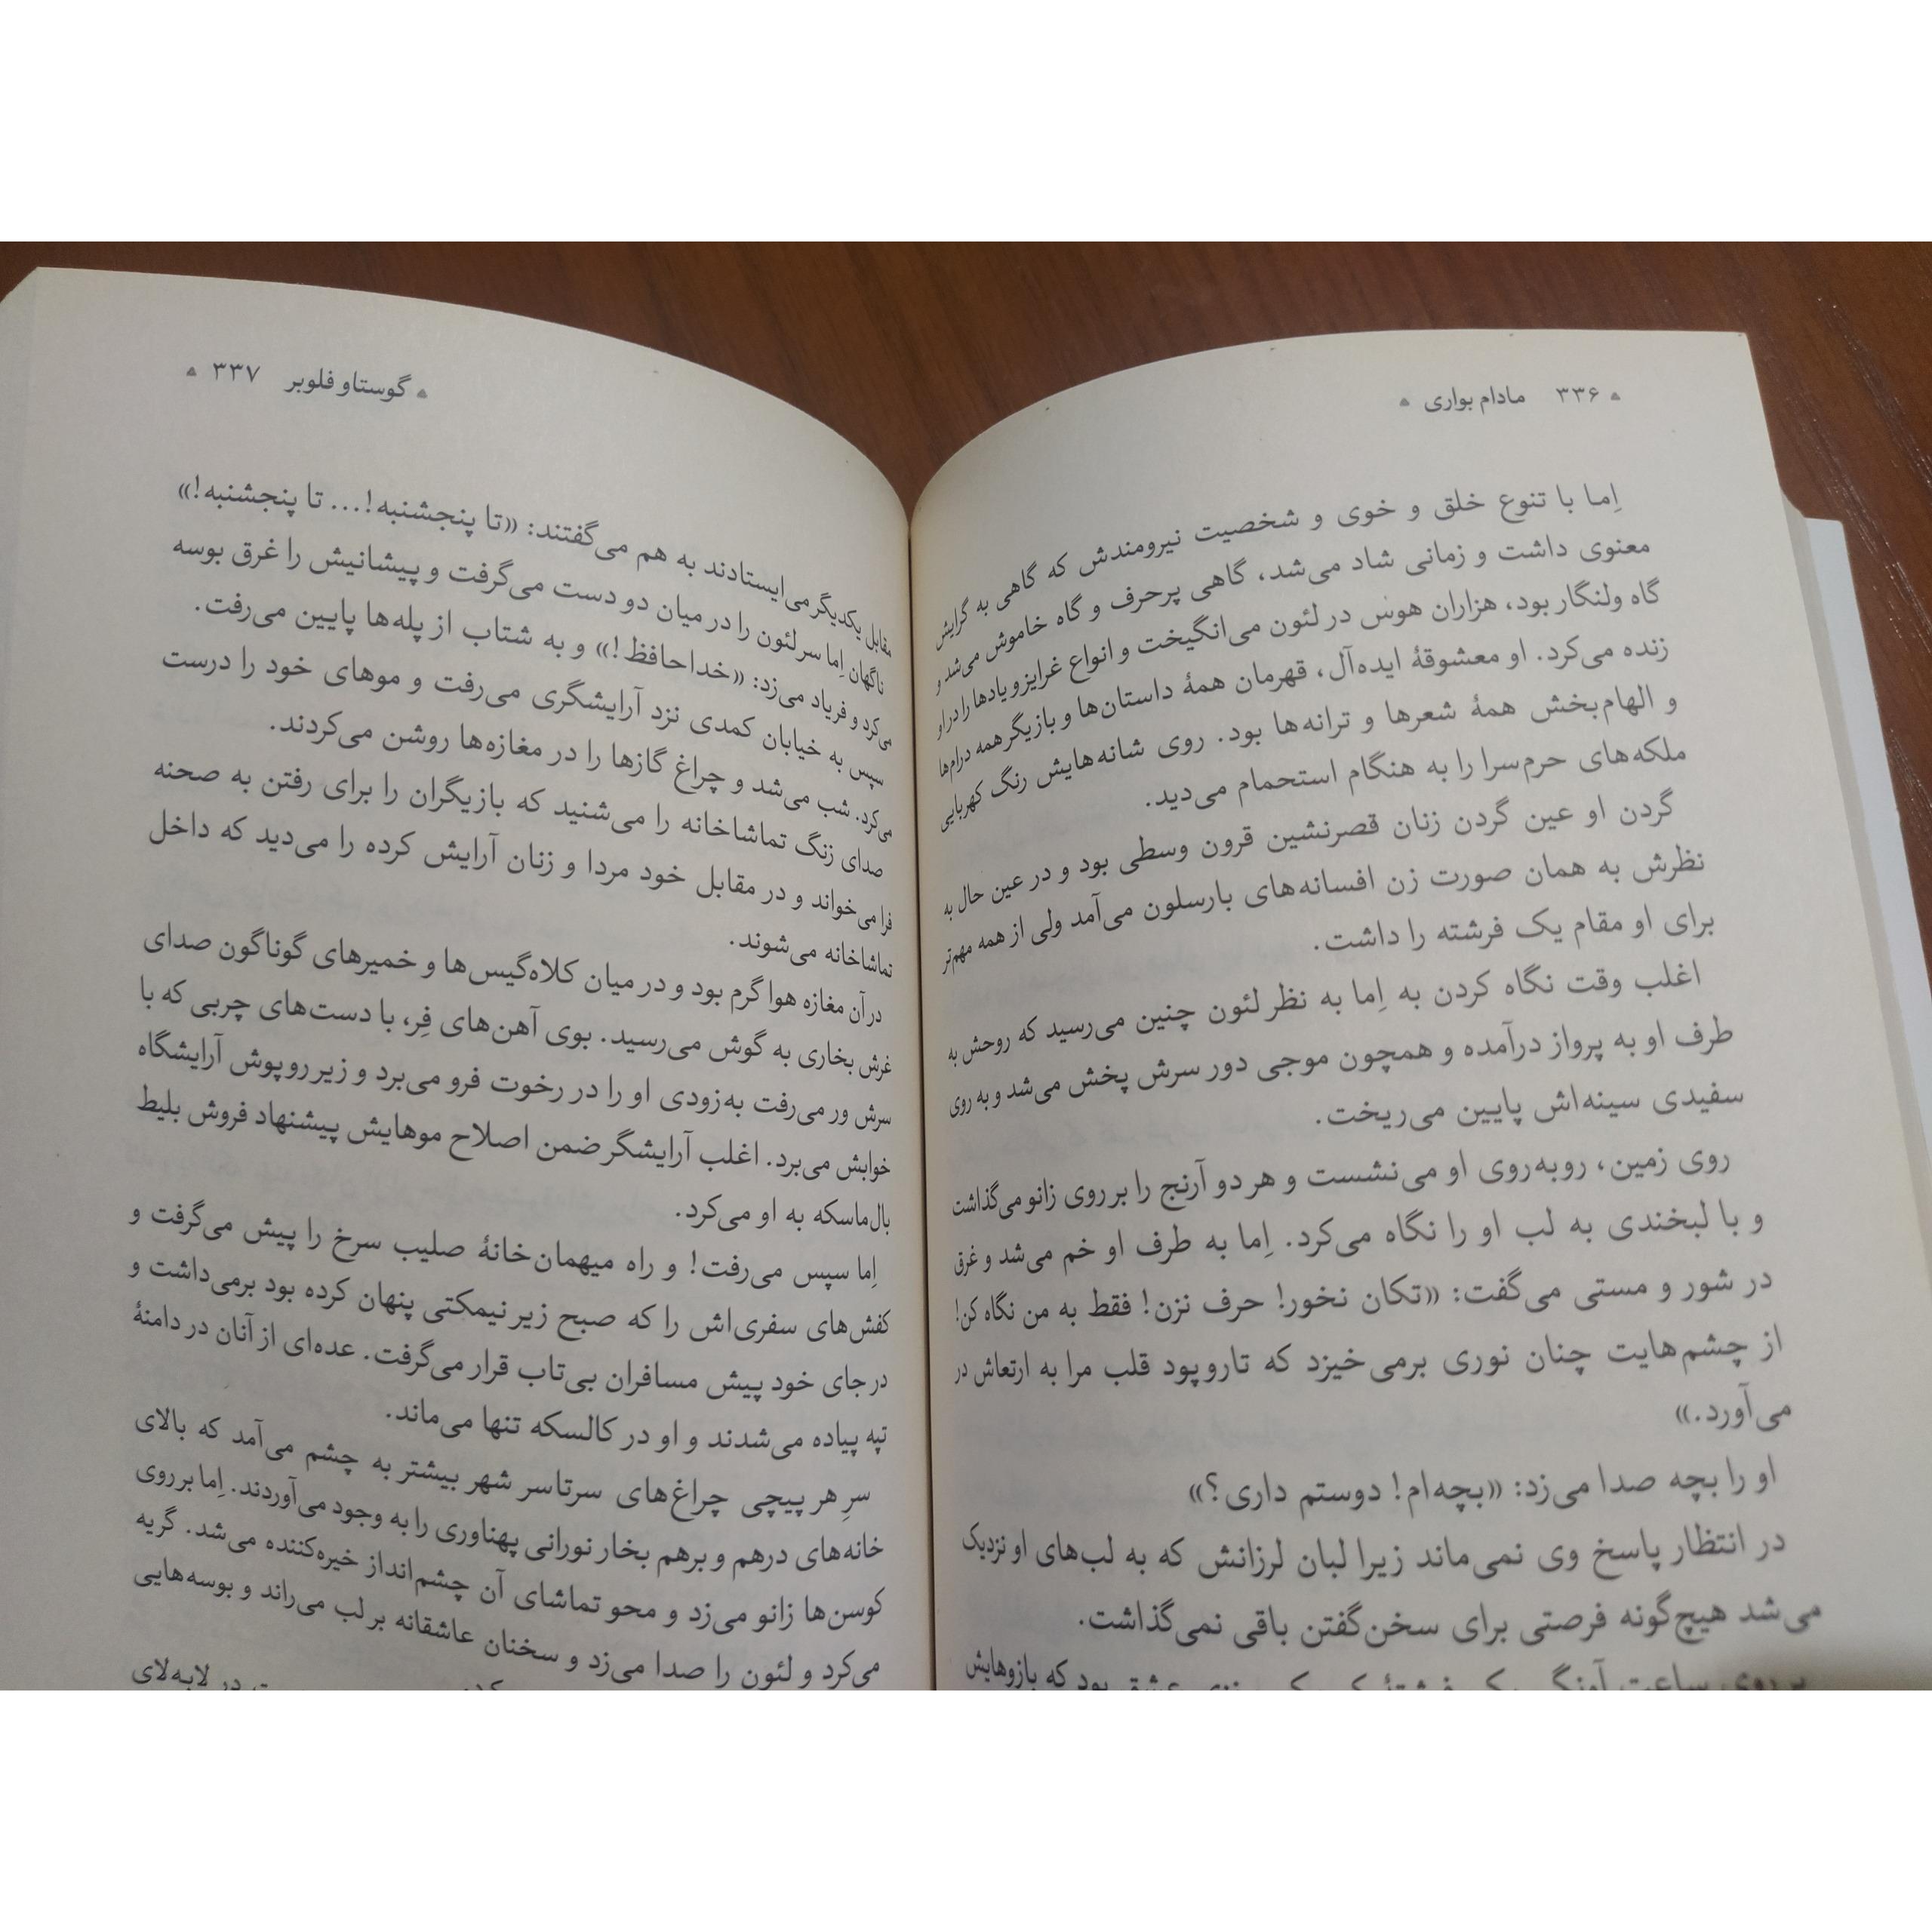 ۳۳۶ مادام بواری
اِما با تنوع خلق و خوی و شخصیت نیرومندش که گاهی به گرایش
معنوی داشت و زمانی شاد می‌شد، گاهی پرحرف و گاه خاموش می‌شد و
گاه ولنگار بود، هزاران هوس در لئون می‌انگیخت و انواع غرایز و یادها را در او
زنده می‌کرد. او معشوقهٔ ایده‌آل، قهرمان همهٔ داستان‌ها و بازیگر همه درام‌ها
و الهام‌بخش همهٔ شعرها و ترانه‌ها بود. روی شانه‌هایش رنگ کهربایی
ملکه‌های حرم‌سرا را به هنگام استحمام می‌دید.
گردن او عین گردن زنان قصرنشین قرون وسطی بود و در عین حال به
نظرش به همان صورت زن افسانه‌های بارسلون می‌آمد ولی از همه مهم‌تر
برای او مقام یک فرشته را داشت.
اغلب وقت نگاه کردن به اِما به نظر لئون چنین می‌رسید که روحش به
طرف او به پرواز درآمده و همچون موجی دور سرش پخش می‌شد و به روی
سفیدی سینه‌اش پایین می‌ریخت.
روی زمین، روبه‌روی او می‌نشست و هر دو آرنج را بر روی زانو می‌گذاشت
و با لبخندی به لب او را نگاه می‌کرد. اِما به طرف او خم می‌شد و غرق
در شور و مستی می‌گفت: «تکان نخور! حرف نزن! فقط به من نگاه کن!
از چشم‌هایت چنان نوری برمی‌خیزد که تاروپود قلب مرا به ارتعاش در
می‌آورد.»
او را بچه صدا می‌زد: «بچه‌ام! دوستم داری؟»
در انتظار پاسخ وی نمی‌ماند زیرا لبان لرزانش که به لب‌های او نزدیک
می‌شد هیچ‌گونه فرصتی برای سخن‌گفتن باقی نمی‌گذاشت.
بر روی ساعت بود که بازوهایش
گوستاو فلوبر ۳۳۷
مقابل یکدیگر می‌ایستادند به هم می‌گفتند: «تا پنجشنبه!... تا پنجشنبه!»
ناگهان اِما سر لئون را در میان دو دست می‌گرفت و پیشانیش را غرق بوسه
می‌کرد و فریاد می‌زد: «خداحافظ!» و به شتاب از پله‌ها پایین می‌رفت.
سپس به خیابان کمدی نزد آرایشگری می‌رفت و موهای خود را درست
می‌کرد. شب می‌شد و چراغ گازها را در مغازه‌ها روشن می‌کردند.
صدای زنگ تماشاخانه را می‌شنید که بازیگران را برای رفتن به صحنه
فرا می‌خواند و در مقابل خود مردا و زنان آرایش کرده را می‌دید که داخل
تماشاخانه می‌شوند.
در آن مغازه هوا گرم بود و در میان کلاه‌گیس‌ها و خمیرهای گوناگون صدای
غرش بخاری به گوش می‌رسید. بوی آهن‌های فِر، با دست‌های چربی که با
سرش ور می‌رفت به‌زودی او را در رخوت فرو می‌برد و زیر روپوش آرایشگاه
خوابش می‌برد. اغلب آرایشگر ضمن اصلاح موهایش پیشنهاد فروش بلیط
بال‌ماسکه به او می‌کرد.
اِما سپس می‌رفت! و راه میهمان‌خانهٔ صلیب سرخ را پیش می‌گرفت و
کفش‌های سفری‌اش را که صبح زیر نیمکتی پنهان کرده بود برمی‌داشت و
در جای خود پیش مسافران بی‌تاب قرار می‌گرفت. عده‌ای از آنان در دامنهٔ
تپه پیاده می‌شدند و او در کالسکه تنها می‌ماند.
سرِ هر پیچی چراغ‌های سرتاسر شهر بیشتر به چشم می‌آمد که بالای
خانه‌های درهم و برهم بخار نورانی پهناوری را به وجود می‌آوردند. اِما بر روی
کوسن‌ها زانو می‌زد و محو تماشای آن چشم‌انداز خیره‌کننده می‌شد. گریه
می‌کرد و لئون را صدا می‌زد و سخنان عاشقانه بر لب می‌راند و بوسه‌هایی
در لابه‌لای